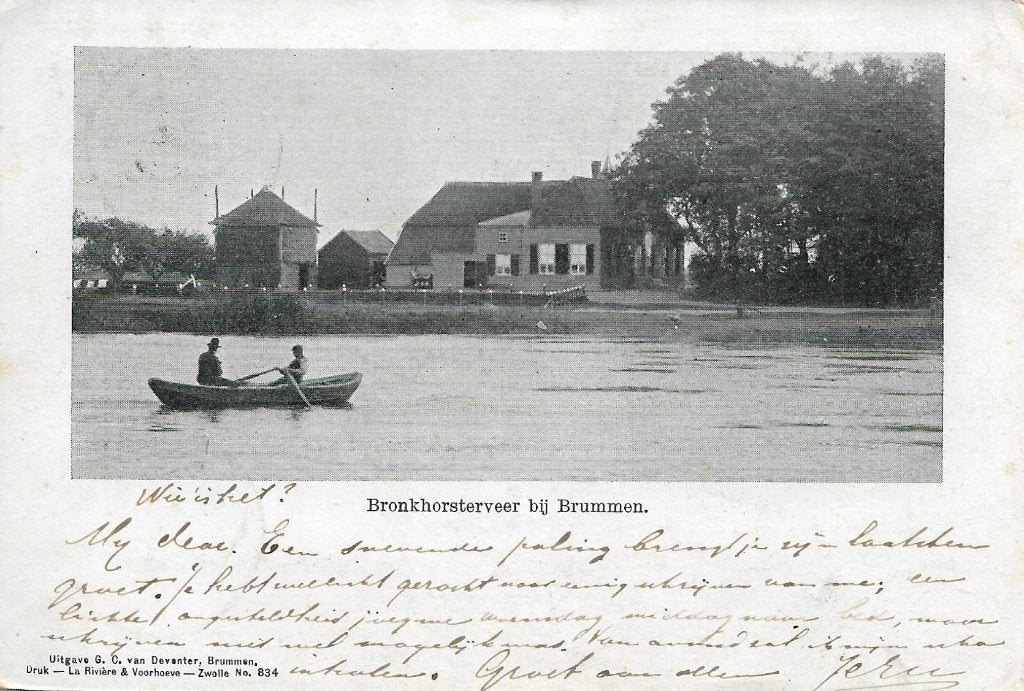 Wie is het?
Bronkhorsterveer bij Brummen.
My dear. Een snevende paling brengt je zijn laatsten
groet. Je hebt wellicht gewacht naar eenig schrijven van me; een
lichte ongesteldheid joeg me woensdag middag naar bed, waar
schrijven niet wel mogelijk was. Van avond zal ik mijn scha
inhalen. Groet aan allen
Uitgave G. C. van Deventer, Brummen.
Druk — La Rivière & Voorhoeve — Zwolle No. 834